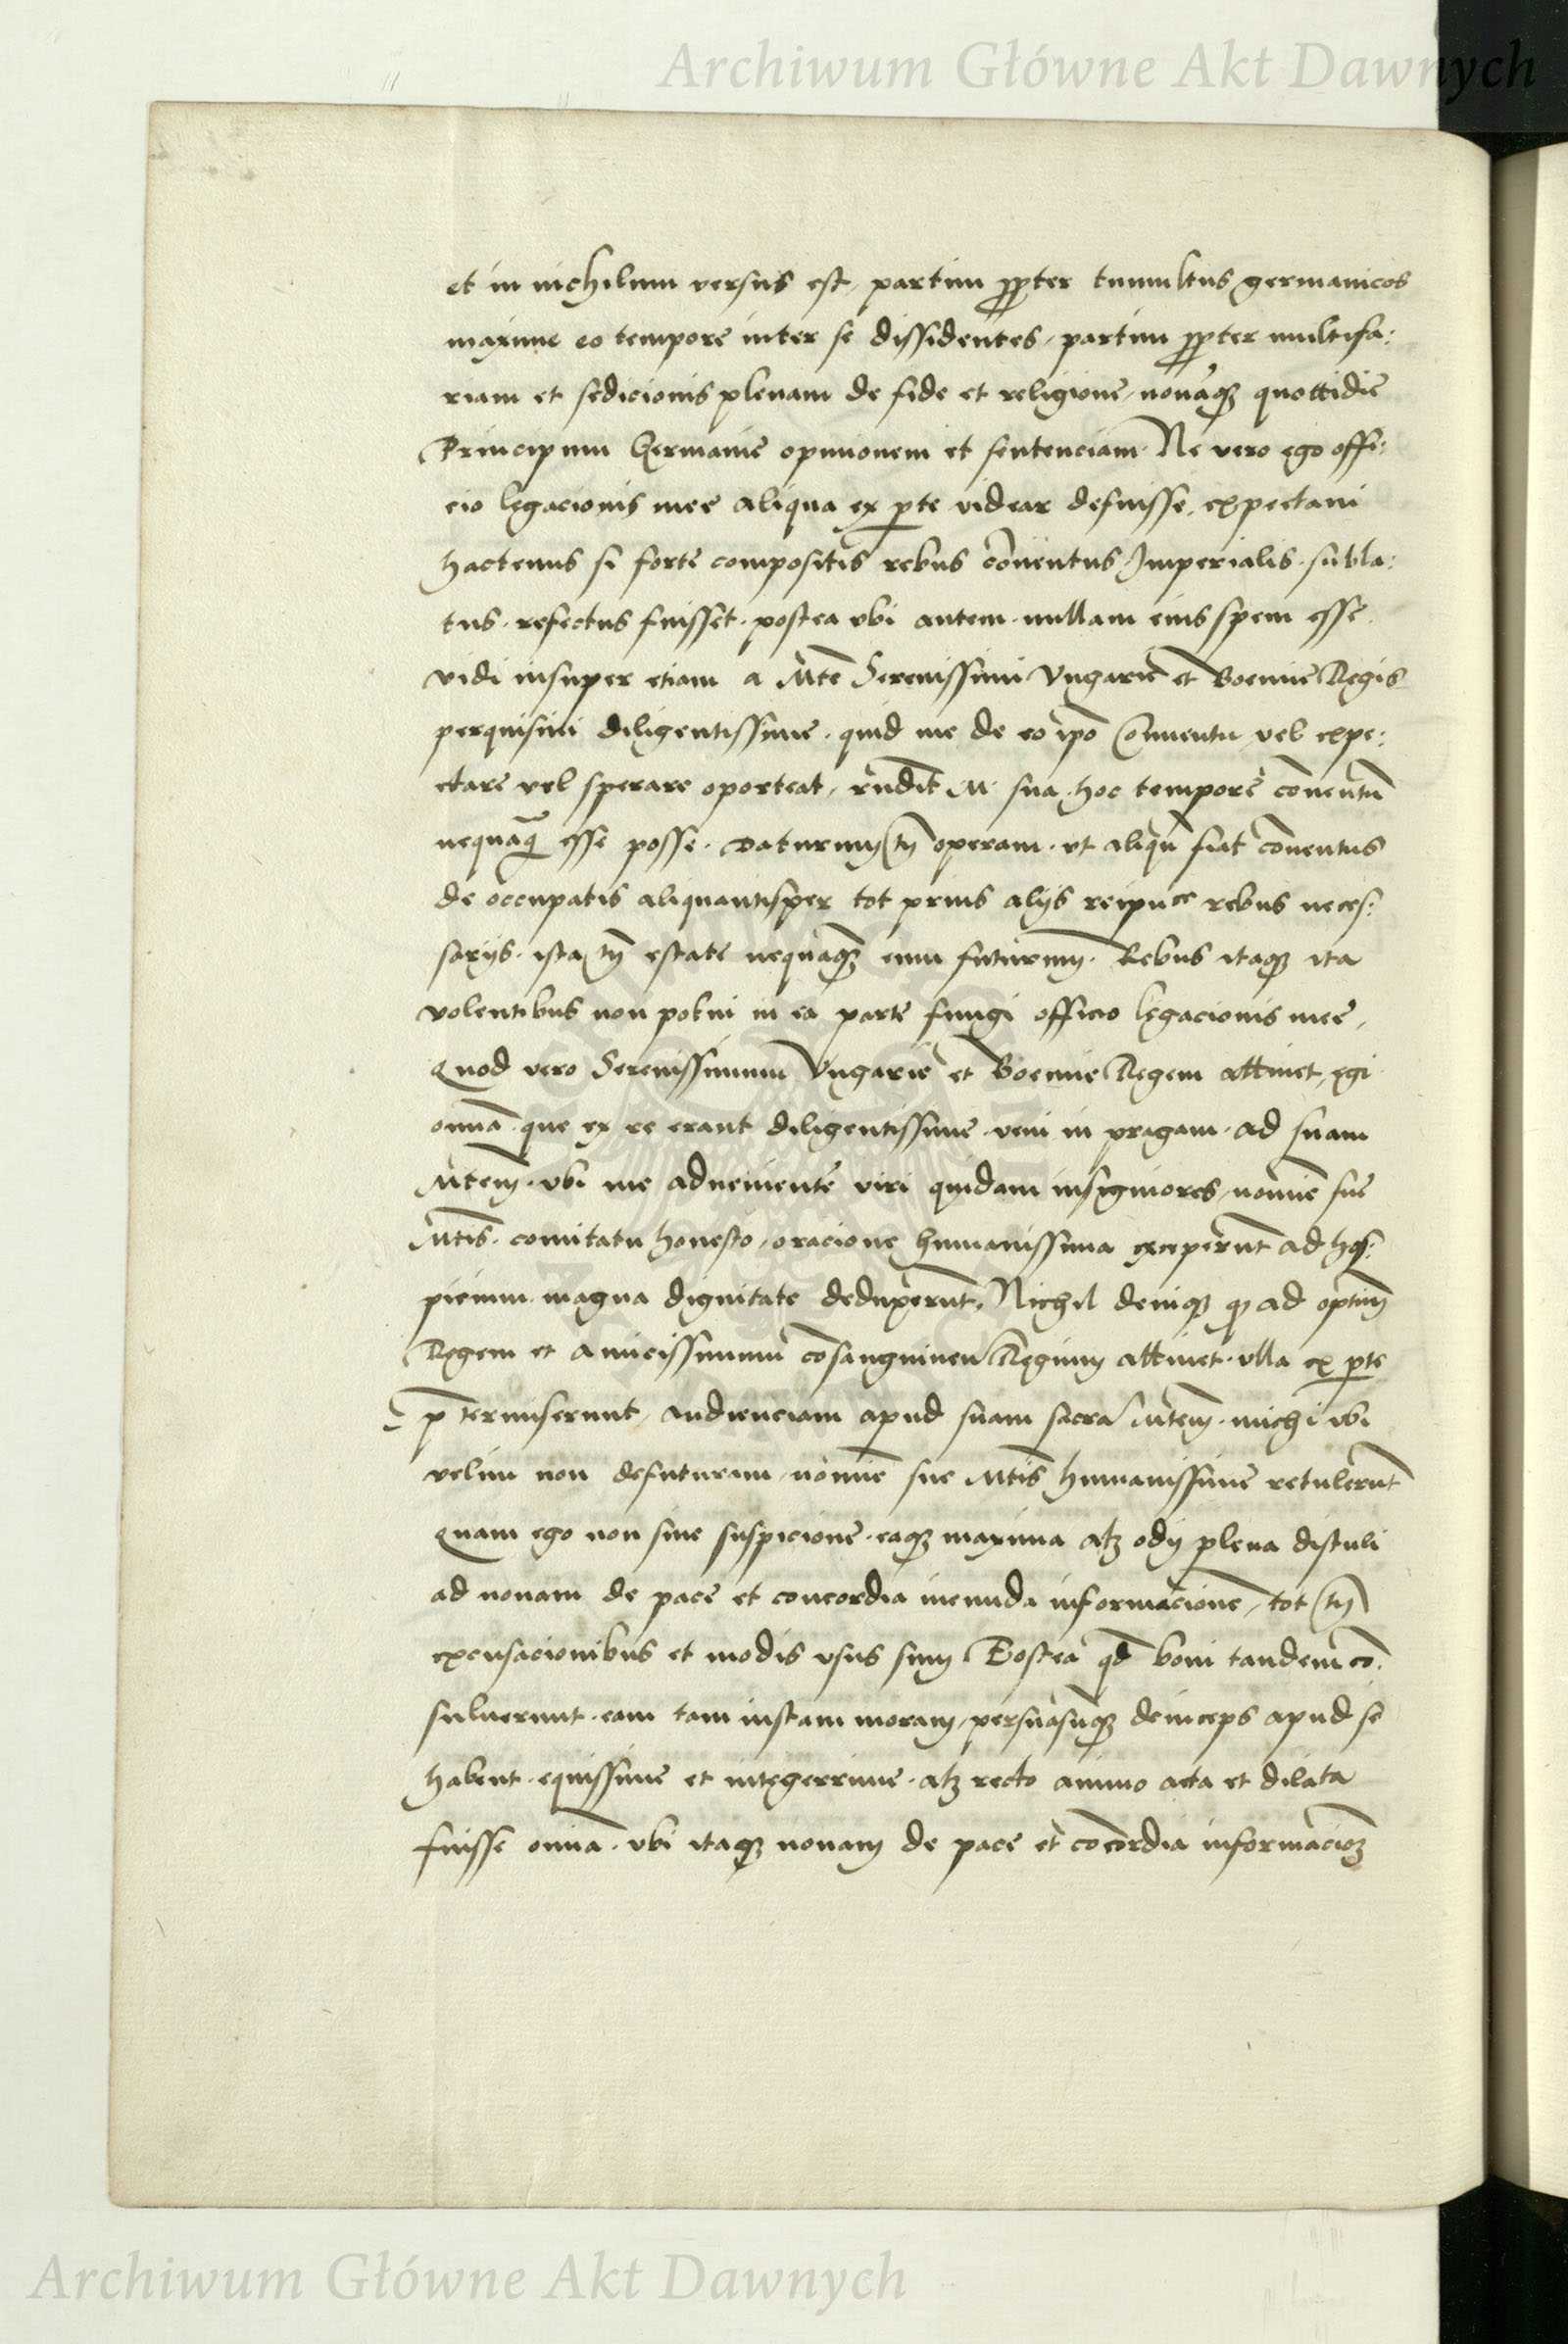 Archiwum Główne Akt Dawnych
et in nichilum versus est, partim propter tumultus germanicos
maxime eo tempore inter se dissidentes, partim propter multifa:
riam et sedicionis plenam de fide et religione, novāqꝫ quottidie
Principum Germanie opinionem et sentenciam. Ne vero ego offi:
cio legacionis mee aliqua ex p̱te videar defuisse, expectavi
hactenus si forte compositis rebus cōventus Imperialis. subla:
tus. refectus fuisset. postea vbi autem. nullam eius spem esse
vidi insuper etiam a Mte Serenissimi Vngarie et Boemie Regis
perquisivi diligentissime. quid me de eo ipo Conventu vel expe:
ctare vel sperare oporteat, rn̄dit M. sua. hoc tempore cōventū
nequaq̄ esse posse. Daturum tn̄ operam. vt aliqn̄ fiat cōventus
de occupatis aliquantisper tot prius alijs reipuce rebus neces:
sarijs. ista tn̄ estate nequaqꝫ eum futurum. Rebus itaqꝫ ita
volentibus non potui in ea parte fungi officio legacionis mee,
Quod vero Serenissimum Vngarie et Boemie Regem attinet, egi
omnā. que ex re erant diligentissime. veni in pragam. ad suam
Mtem. vbi me adveniente viri quidam insigniores, nomine sue
Mtis. comitatu honesto, oracione humanissima exceperunt ad hos:
picium. magna dignitate deduxerunt. Nichil deniqꝫ qd ad optim̄
Regem et amicissimum cōsanguineū Regium attinet. vlla ex p̱te
p̄termiserunt, audienciam apud suam sacrā Mtem. michi vbi
velim non defuturam, nomine sue Mtis humanissime retulerunt
Quam ego non sine suspicione. eaqꝫ maxima atqꝫ odij plena distuli
ad novam de pace et concordia ineunda informacionē, tot tn̄
excusacionibus et modis vsus sum Postea qd boni tandem cō:
suluerunt. eam tam iustam moram, persuasūqꝫ deinceps apud se
habent. equissime et integerrime. atqꝫ recto animo acta et dilata
fuisse omnā. vbi itaqꝫ novam de pace et cōcordia informacioꝫ
Archiwum Główne Akt Dawnych